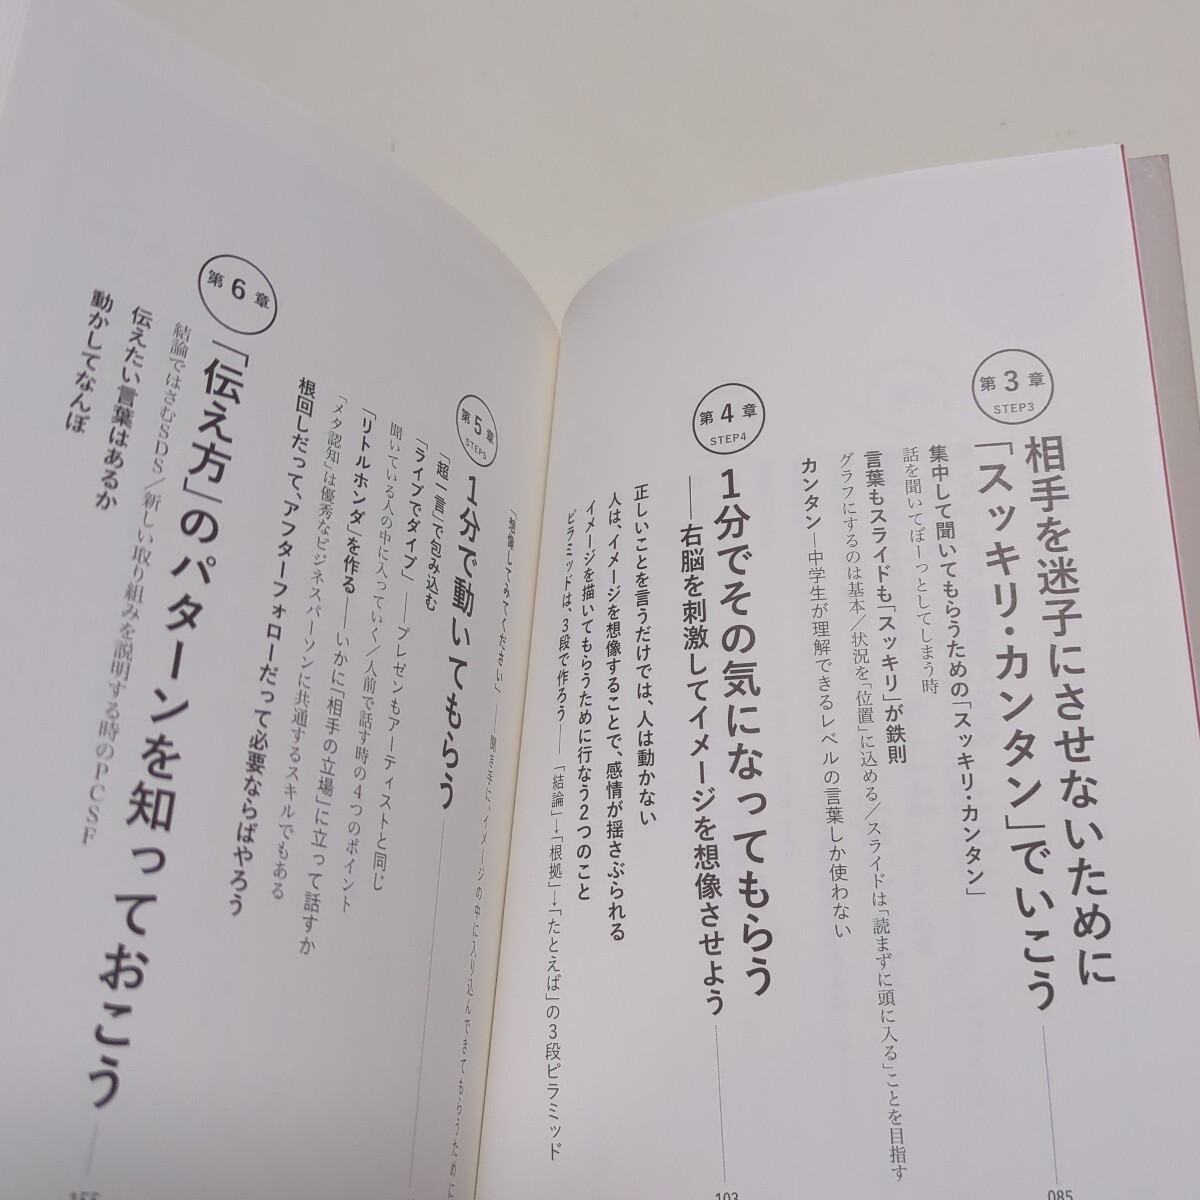 第3章
STEP3
相手を迷子にさせないために
「スッキリ・カンタン」でいこう
085
集中して聞いてもらうための「スッキリ・カンタン」
話を聞いてぼーっとしてしまう時
言葉もスライドも「スッキリ」が鉄則
グラフにするのは基本／状況を「位置」に込める／スライドは「読まずに頭に入る」ことを目指す
カンタン―中学生が理解できるレベルの言葉しか使わない
第4章
STEP4
1分でその気になってもらう
――右脳を刺激してイメージを想像させよう
103
正しいことを言うだけでは、人は動かない
人は、イメージを想像することで、感情が揺さぶられる
イメージを描いてもらうために行なう2つのこと
ピラミッドは、3段で作ろう――「結論」→「根拠」→「たとえば」の3段ピラミッド
「想像してみてください」――聞き手に、イメージの中に入り込んできてもらうために
第5章
STEP5
1分で動いてもらう
「超一言」で包み込む
「ライブでダイブ」――プレゼンもアーティストと同じ
聞いている人の中に入っていく／人前で話す時の4つのポイント
「リトルホンダ」を作る――いかに「相手の立場」に立って話すか
「メタ認知」は優秀なビジネスパーソンに共通するスキルでもある
根回しだって、アフターフォローだって必要ならばやろう
第6章
「伝え方」のパターンを知っておこう
155
結論ではさむSDS／新しい取り組みを説明する時のPCSF
伝えたい言葉はあるか
動かしてなんぼ